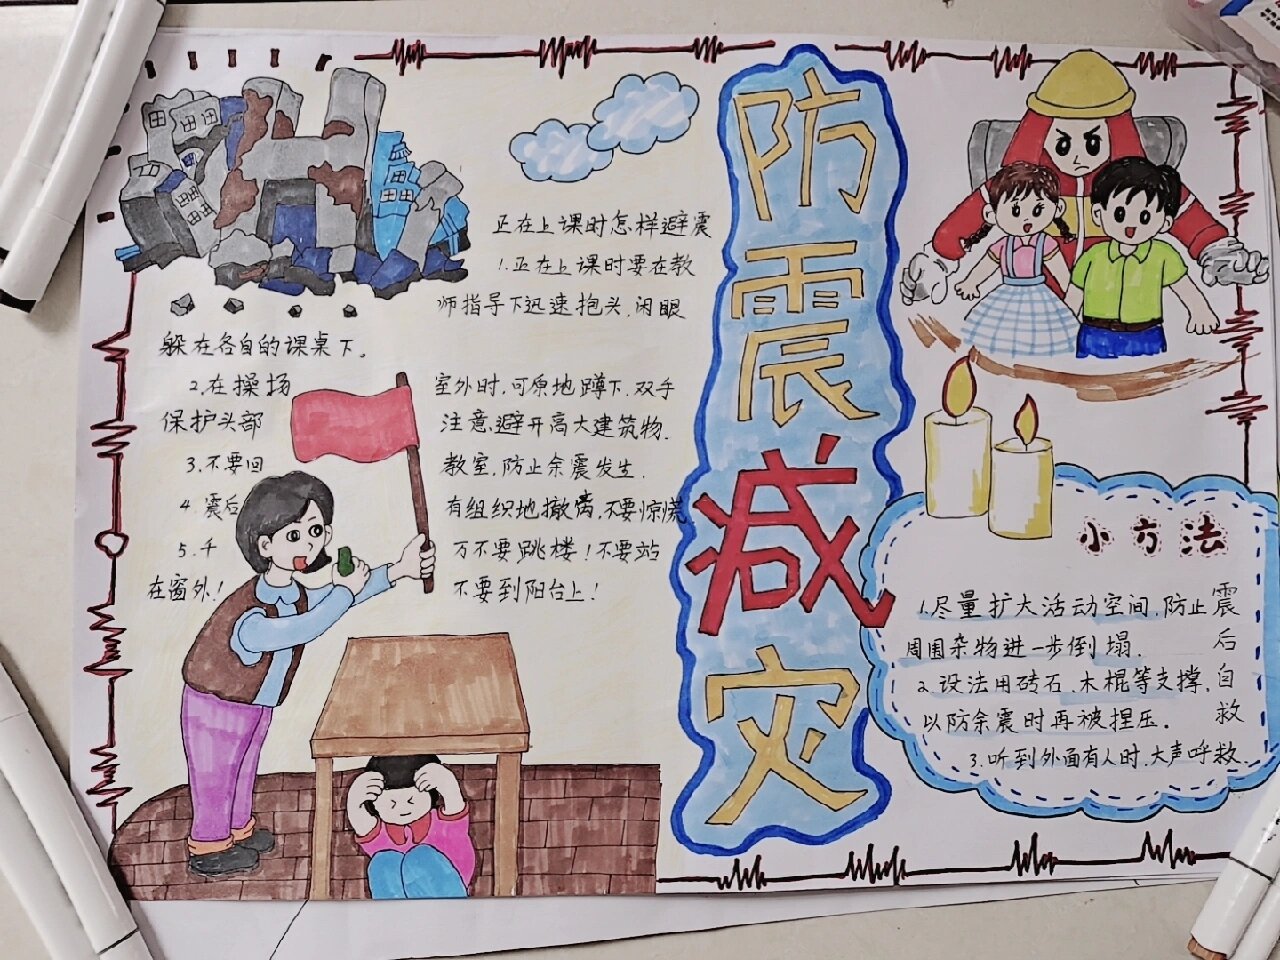 防震减灾
正在上课时怎样避震
1.正在上课时要在教
师指导下迅速抱头.闭眼
躲在各自的课桌下。
2.在操场室外时,可原地蹲下.双手
保护头部注意.避开高大建筑物.
3.不要回教室,防止余震发生.
4.震后有组织地撤离,不要惊慌
5.千万不要跳楼!不要站
在窗外!不要到阳台上!
小方法
震后自救
1.尽量扩大活动空间,防止
周围杂物进一步倒塌.
2.设法用砖石.木棍等支撑,
以防余震时再被捏压。
3.听到外面有人时,大声呼救.